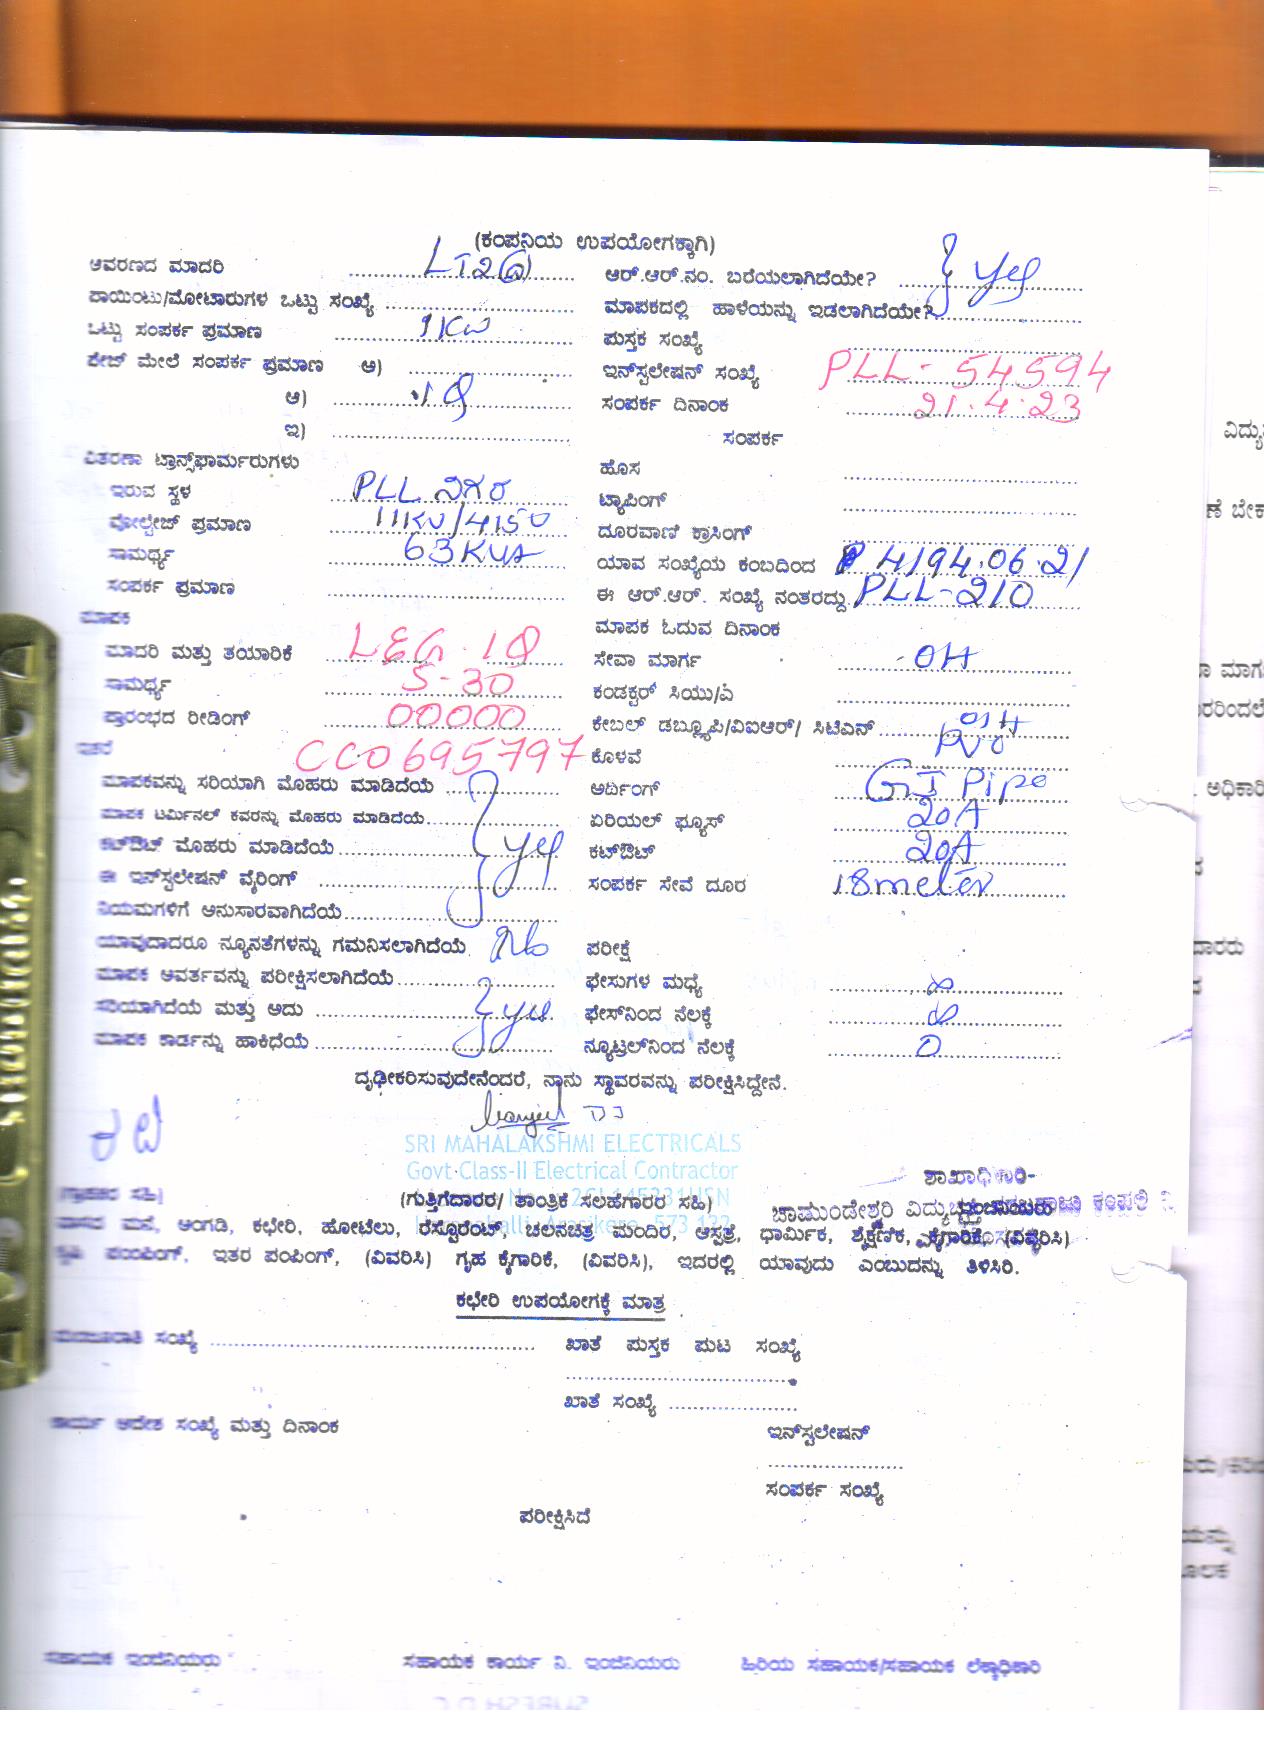 (ಕಂಪನಿಯ ಉಪಯೋಗಕ್ಕಾಗಿ)
ಆವರಣದ ಮಾದರಿ LT2(a)
ಪಾಯಿಂಟು/ಮೋಟಾರುಗಳ ಒಟ್ಟು ಸಂಖ್ಯೆ
ಒಟ್ಟು ಸಂಪರ್ಕ ಪ್ರಮಾಣ 1KW
ಫೇಜ್ ಮೇಲೆ ಸಂಪರ್ಕ ಪ್ರಮಾಣ ಅ)
ಆ) 1Φ
ಇ)
ವಿತರಣಾ ಟ್ರಾನ್ಸ್‌ಫಾರ್ಮರುಗಳು
ಇರುವ ಸ್ಥಳ PLL ನಿಗರ
ವೋಲ್ಟೇಜ್ ಪ್ರಮಾಣ 11KV/4150
ಸಾಮರ್ಥ್ಯ 63KVA
ಸಂಪರ್ಕ ಪ್ರಮಾಣ
ಮಾಪಕ
ಮಾದರಿ ಮತ್ತು ತಯಾರಿಕೆ L&G 1Φ
ಸಾಮರ್ಥ್ಯ 5-30
ಪ್ರಾರಂಭದ ರೀಡಿಂಗ್ 00000
ಇತರೆ CCO695797
ಮಾಪಕವನ್ನು ಸರಿಯಾಗಿ ಮೊಹರು ಮಾಡಿದೆಯೆ
ಮಾಪಕ ಟರ್ಮಿನಲ್ ಕವರನ್ನು ಮೊಹರು ಮಾಡಿದೆಯೆ
ಕಟ್‌ಔಟ್ ಮೊಹರು ಮಾಡಿದೆಯೆ yes
ಈ ಇನ್‌ಸ್ಟಲೇಷನ್ ವೈರಿಂಗ್
ನಿಯಮಗಳಿಗೆ ಅನುಸಾರವಾಗಿದೆಯೆ
ಯಾವುದಾದರೂ ನ್ಯೂನತೆಗಳನ್ನು ಗಮನಿಸಲಾಗಿದೆಯೆ No
ಮಾಪಕ ಆವರ್ತವನ್ನು ಪರೀಕ್ಷಿಸಲಾಗಿದೆಯೆ
ಸರಿಯಾಗಿದೆಯೆ ಮತ್ತು ಅದು yes
ಮಾಪಕ ಕಾರ್ಡನ್ನು ಹಾಕಿಧೆಯೆ
ಆರ್.ಆರ್.ನಂ. ಬರೆಯಲಾಗಿದೆಯೇ? yes
ಮಾಪಕದಲ್ಲಿ ಹಾಳೆಯನ್ನು ಇಡಲಾಗಿದೆಯೇ?
ಪುಸ್ತಕ ಸಂಖ್ಯೆ
ಇನ್‌ಸ್ಟಲೇಷನ್ ಸಂಖ್ಯೆ PLL-54594
ಸಂಪರ್ಕ ದಿನಾಂಕ 21.4.23
ಸಂಪರ್ಕ
ಹೊಸ
ಟ್ಯಾಪಿಂಗ್
ದೂರವಾಣಿ ಕ್ರಾಸಿಂಗ್
ಯಾವ ಸಂಖ್ಯೆಯ ಕಂಬದಿಂದ P 4194.06.21
ಈ ಆರ್.ಆರ್. ಸಂಖ್ಯೆ ನಂತರದ್ದು PLL-210
ಮಾಪಕ ಓದುವ ದಿನಾಂಕ
ಸೇವಾ ಮಾರ್ಗ OH
ಕಂಡಕ್ಟರ್ ಸಿಯು/ಎ
ಕೇಬಲ್ ಡಬ್ಲ್ಯೂಪಿ/ವಿಐಆರ್/ ಸಿಟಿಎಸ್ OH
ಕೊಳವೆ PVC
ಅರ್ದಿಂಗ್ GI Pipe
ಏರಿಯಲ್ ಫ್ಯೂಸ್ 20A
ಕಟ್‌ಔಟ್ 20A
ಸಂಪರ್ಕ ಸೇವೆ ದೂರ 18 meter
ಪರೀಕ್ಷೆ
ಫೇಸುಗಳ ಮಧ್ಯೆ ∞
ಫೇಸ್‌ನಿಂದ ನೆಲಕ್ಕೆ ∞
ನ್ಯೂಟ್ರಲ್‌ನಿಂದ ನೆಲಕ್ಕೆ 0
ದೃಢೀಕರಿಸುವುದೇನೆಂದರೆ, ನಾನು ಸ್ಥಾವರವನ್ನು ಪರೀಕ್ಷಿಸಿದ್ದೇನೆ.
SRI MAHALAKSHMI ELECTRICALS
Govt.Class-II Electrical Contractor
ಶಾಖಾಧಿಕಾರಿ
(ಗ್ರಾಹಕರ ಸಹಿ) (ಗುತ್ತಿಗೆದಾರರ/ ತಾಂತ್ರಿಕ ಸಲಹೆಗಾರರ ಸಹಿ)
ವಾಸದ ಮನೆ, ಅಂಗಡಿ, ಕಛೇರಿ, ಹೋಟೆಲು, ರೆಸ್ಟೊರೆಂಟ್, ಚಲನಚಿತ್ರ ಮಂದಿರ, ಆಸ್ಪತ್ರೆ, ಧಾರ್ಮಿಕ, ಶೈಕ್ಷಣಿಕ, ಕೈಗಾರಿಕೆ, (ವಿವರಿಸಿ)
ಕೃಷಿ ಪಂಪಿಂಗ್, ಇತರ ಪಂಪಿಂಗ್, (ವಿವರಿಸಿ) ಗೃಹ ಕೈಗಾರಿಕೆ, (ವಿವರಿಸಿ), ಇದರಲ್ಲಿ ಯಾವುದು ಎಂಬುದನ್ನು ತಿಳಿಸಿರಿ.
ಕಛೇರಿ ಉಪಯೋಗಕ್ಕೆ ಮಾತ್ರ
ಮಂಜೂರಾತಿ ಸಂಖ್ಯೆ
ಖಾತೆ ಪುಸ್ತಕ ಪುಟ ಸಂಖ್ಯೆ
ಖಾತೆ ಸಂಖ್ಯೆ
ಕಾರ್ಯ ಆದೇಶ ಸಂಖ್ಯೆ ಮತ್ತು ದಿನಾಂಕ
ಇನ್‌ಸ್ಟಲೇಷನ್
ಸಂಪರ್ಕ ಸಂಖ್ಯೆ
ಪರೀಕ್ಷಿಸಿದೆ
ಸಹಾಯಕ ಇಂಜಿನಿಯರು ಸಹಾಯಕ ಕಾರ್ಯ ನಿ. ಇಂಜಿನಿಯರು ಹಿರಿಯ ಸಹಾಯಕ/ಸಹಾಯಕ ಲೆಕ್ಕಾಧಿಕಾರಿ